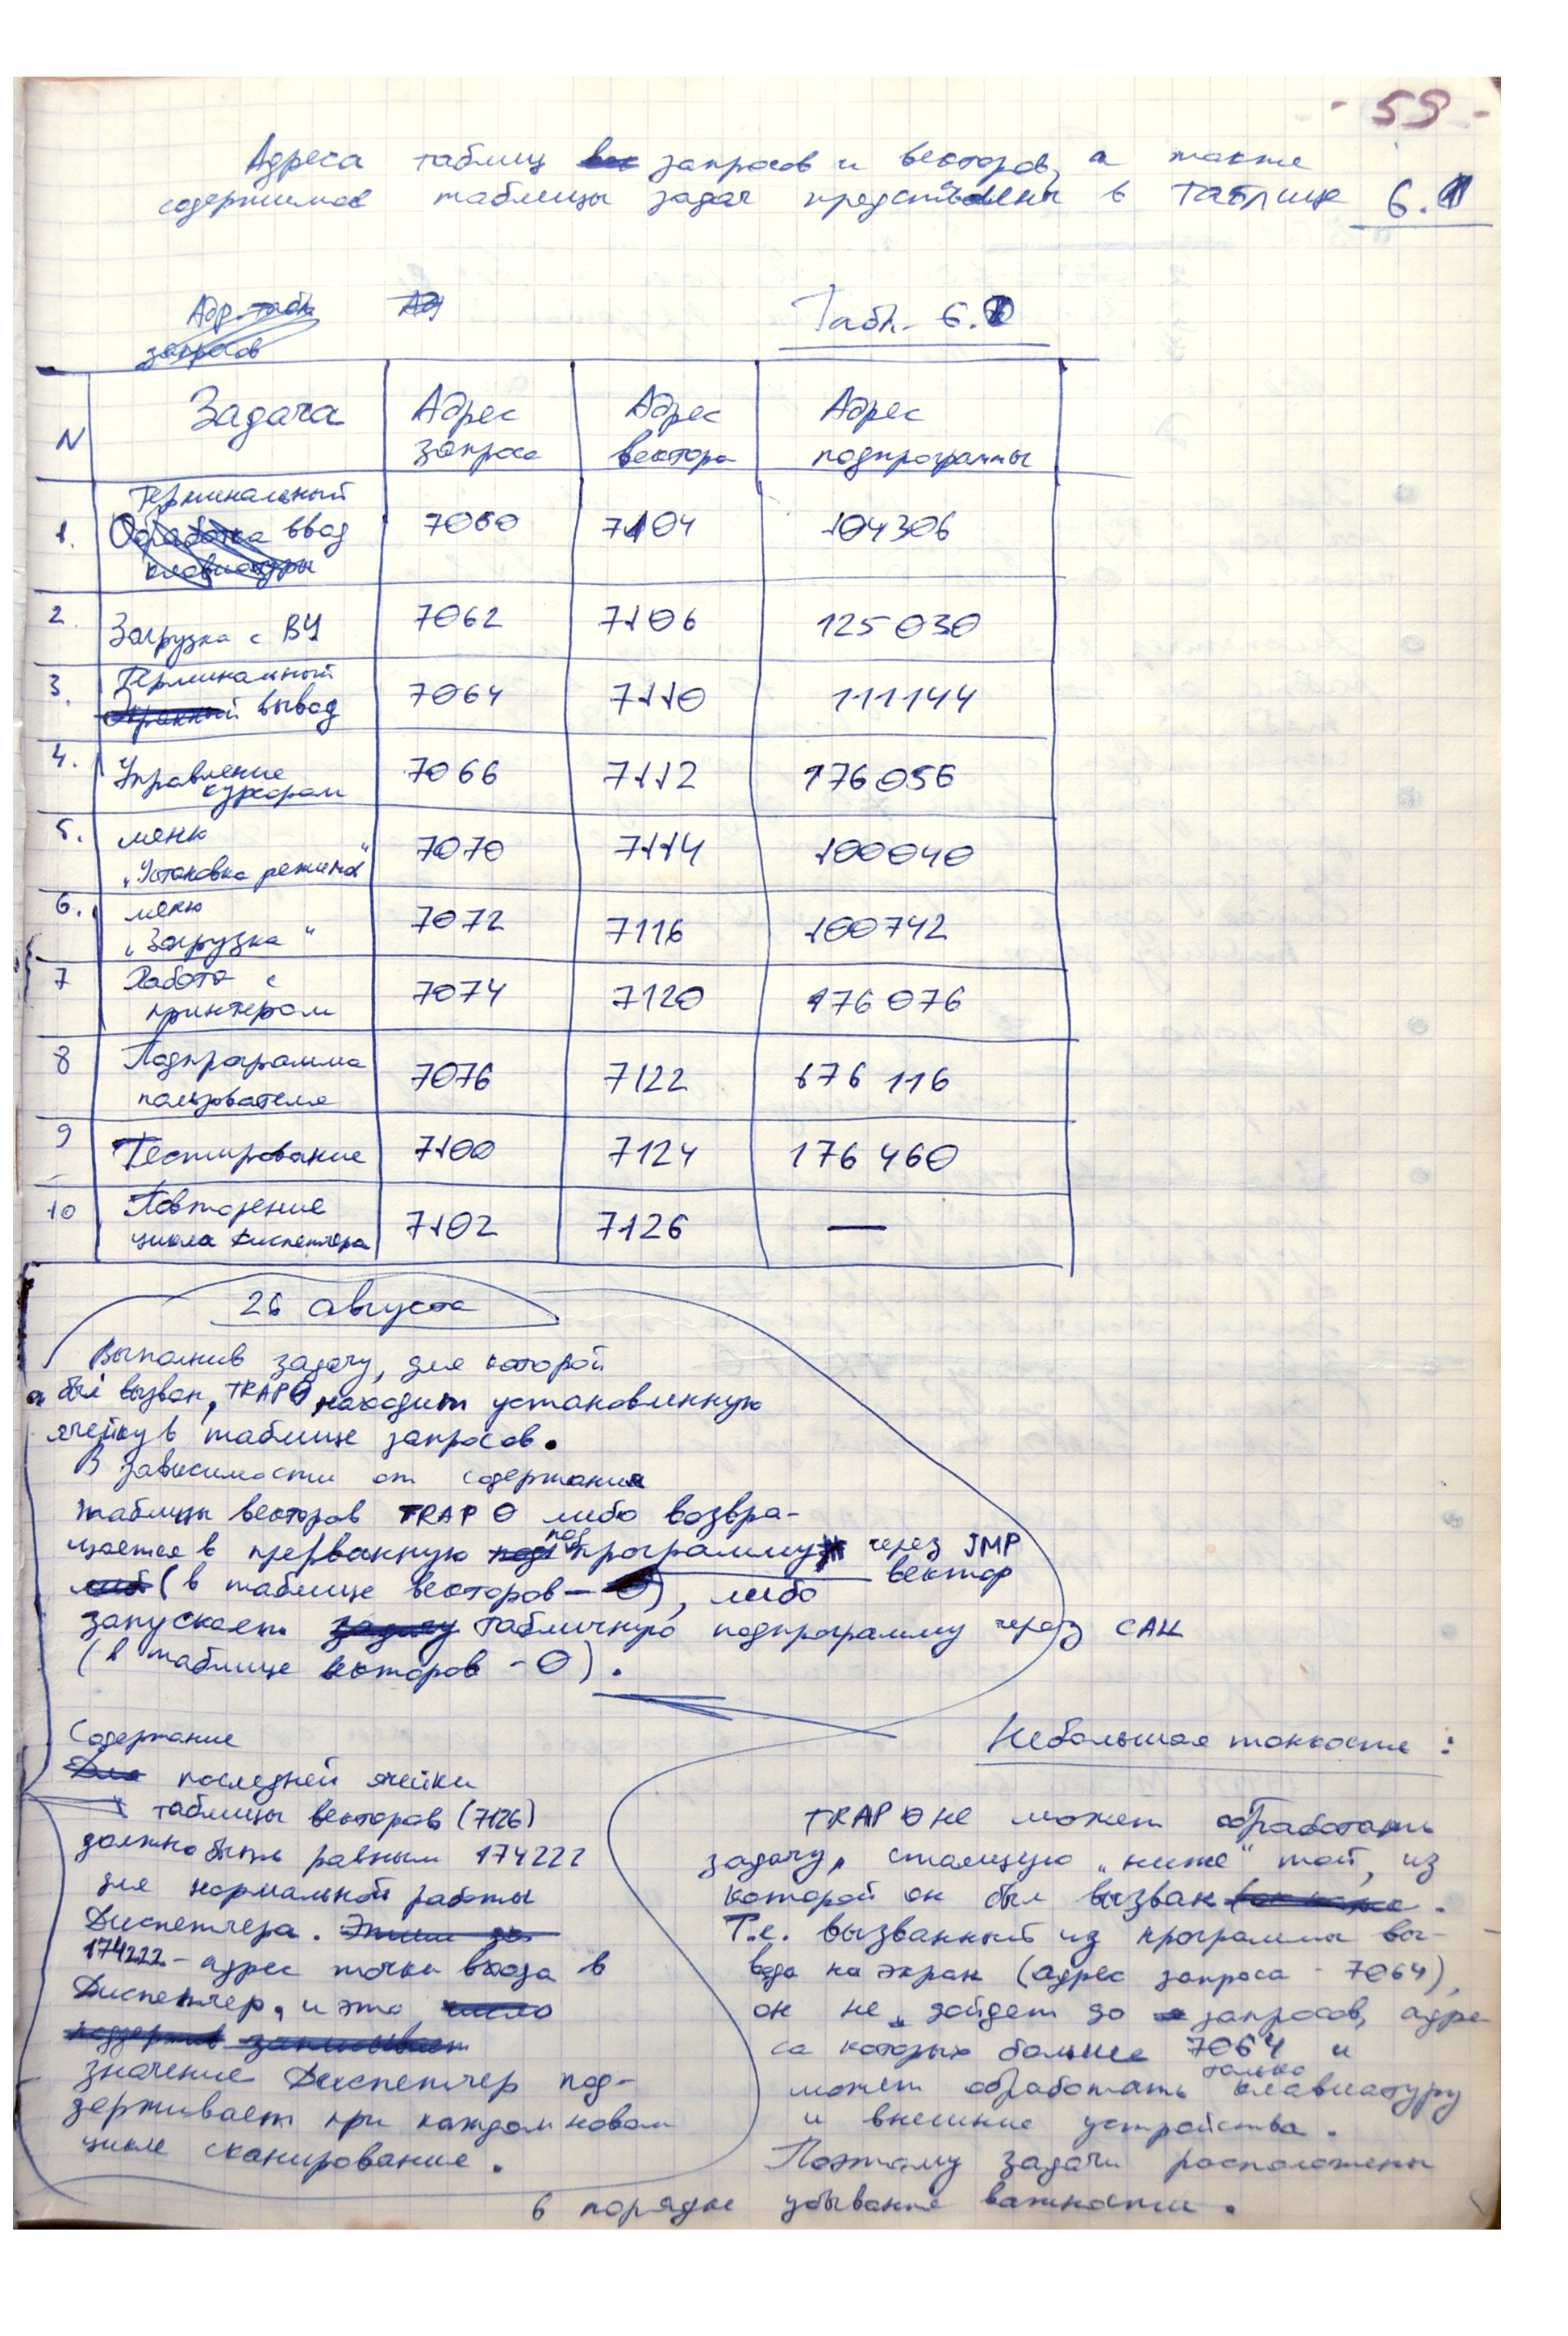 - 59 -
Адреса таблиц запросов и векторов, а также
содержимое таблицы задач представлены в Таблице 6.1
Адр. табл.
запросов
Табл. 6.1
N Задача Адрес запроса Адрес вектора Адрес подпрограммы
1. Терминальный ввод 7060 7104 104306
Обработка
клавиатуры
2. Загрузка с ВУ 7062 7106 125030
3. Терминальный вывод 7064 7110 111144
4. Управление курсором 7066 7112 176056
5. меню „Установка режимов" 7070 7114 100040
6. меню „Загрузка" 7072 7116 100742
7 Работа с принтером 7074 7120 176076
8 Подпрограмма пользователя 7076 7122 176 116
9 Тестирование 7100 7124 176 460
10 Повторение цикла Диспетчера 7102 7126 —
26 августа
Выполнив задачу, для которой
был вызван, TRAP 0 находит установленную
ячейку в таблице запросов.
В зависимости от содержания
таблицы векторов TRAP 0 либо возвра-
щается в прерванную подпрограмму через JMP
вектор
(в таблице векторов – 0), либо
запускает табличную подпрограмму через CALL
(в таблице векторов - 0).
Содержание
последней ячейки
таблицы векторов (7126)
должно быть равным 174222
для нормальной работы
Диспетчера.
174222 - адрес точки входа в
Диспетчер, и это
значение Диспетчер под-
держивает при каждом новом
цикле сканирование.
Небольшая тонкость:
TRAP 0 не может обработать
задачу, стоящую „ниже" той, из
которой он был вызван.
Т.е. вызванный из программы вы-
вода на экран (адрес запроса - 7064),
он не дойдет до запросов, адре
са которых больше 7064 и
может обработать только клавиатуру
и внешние устройства.
Поэтому задачи расположены
в порядке убывание важности.